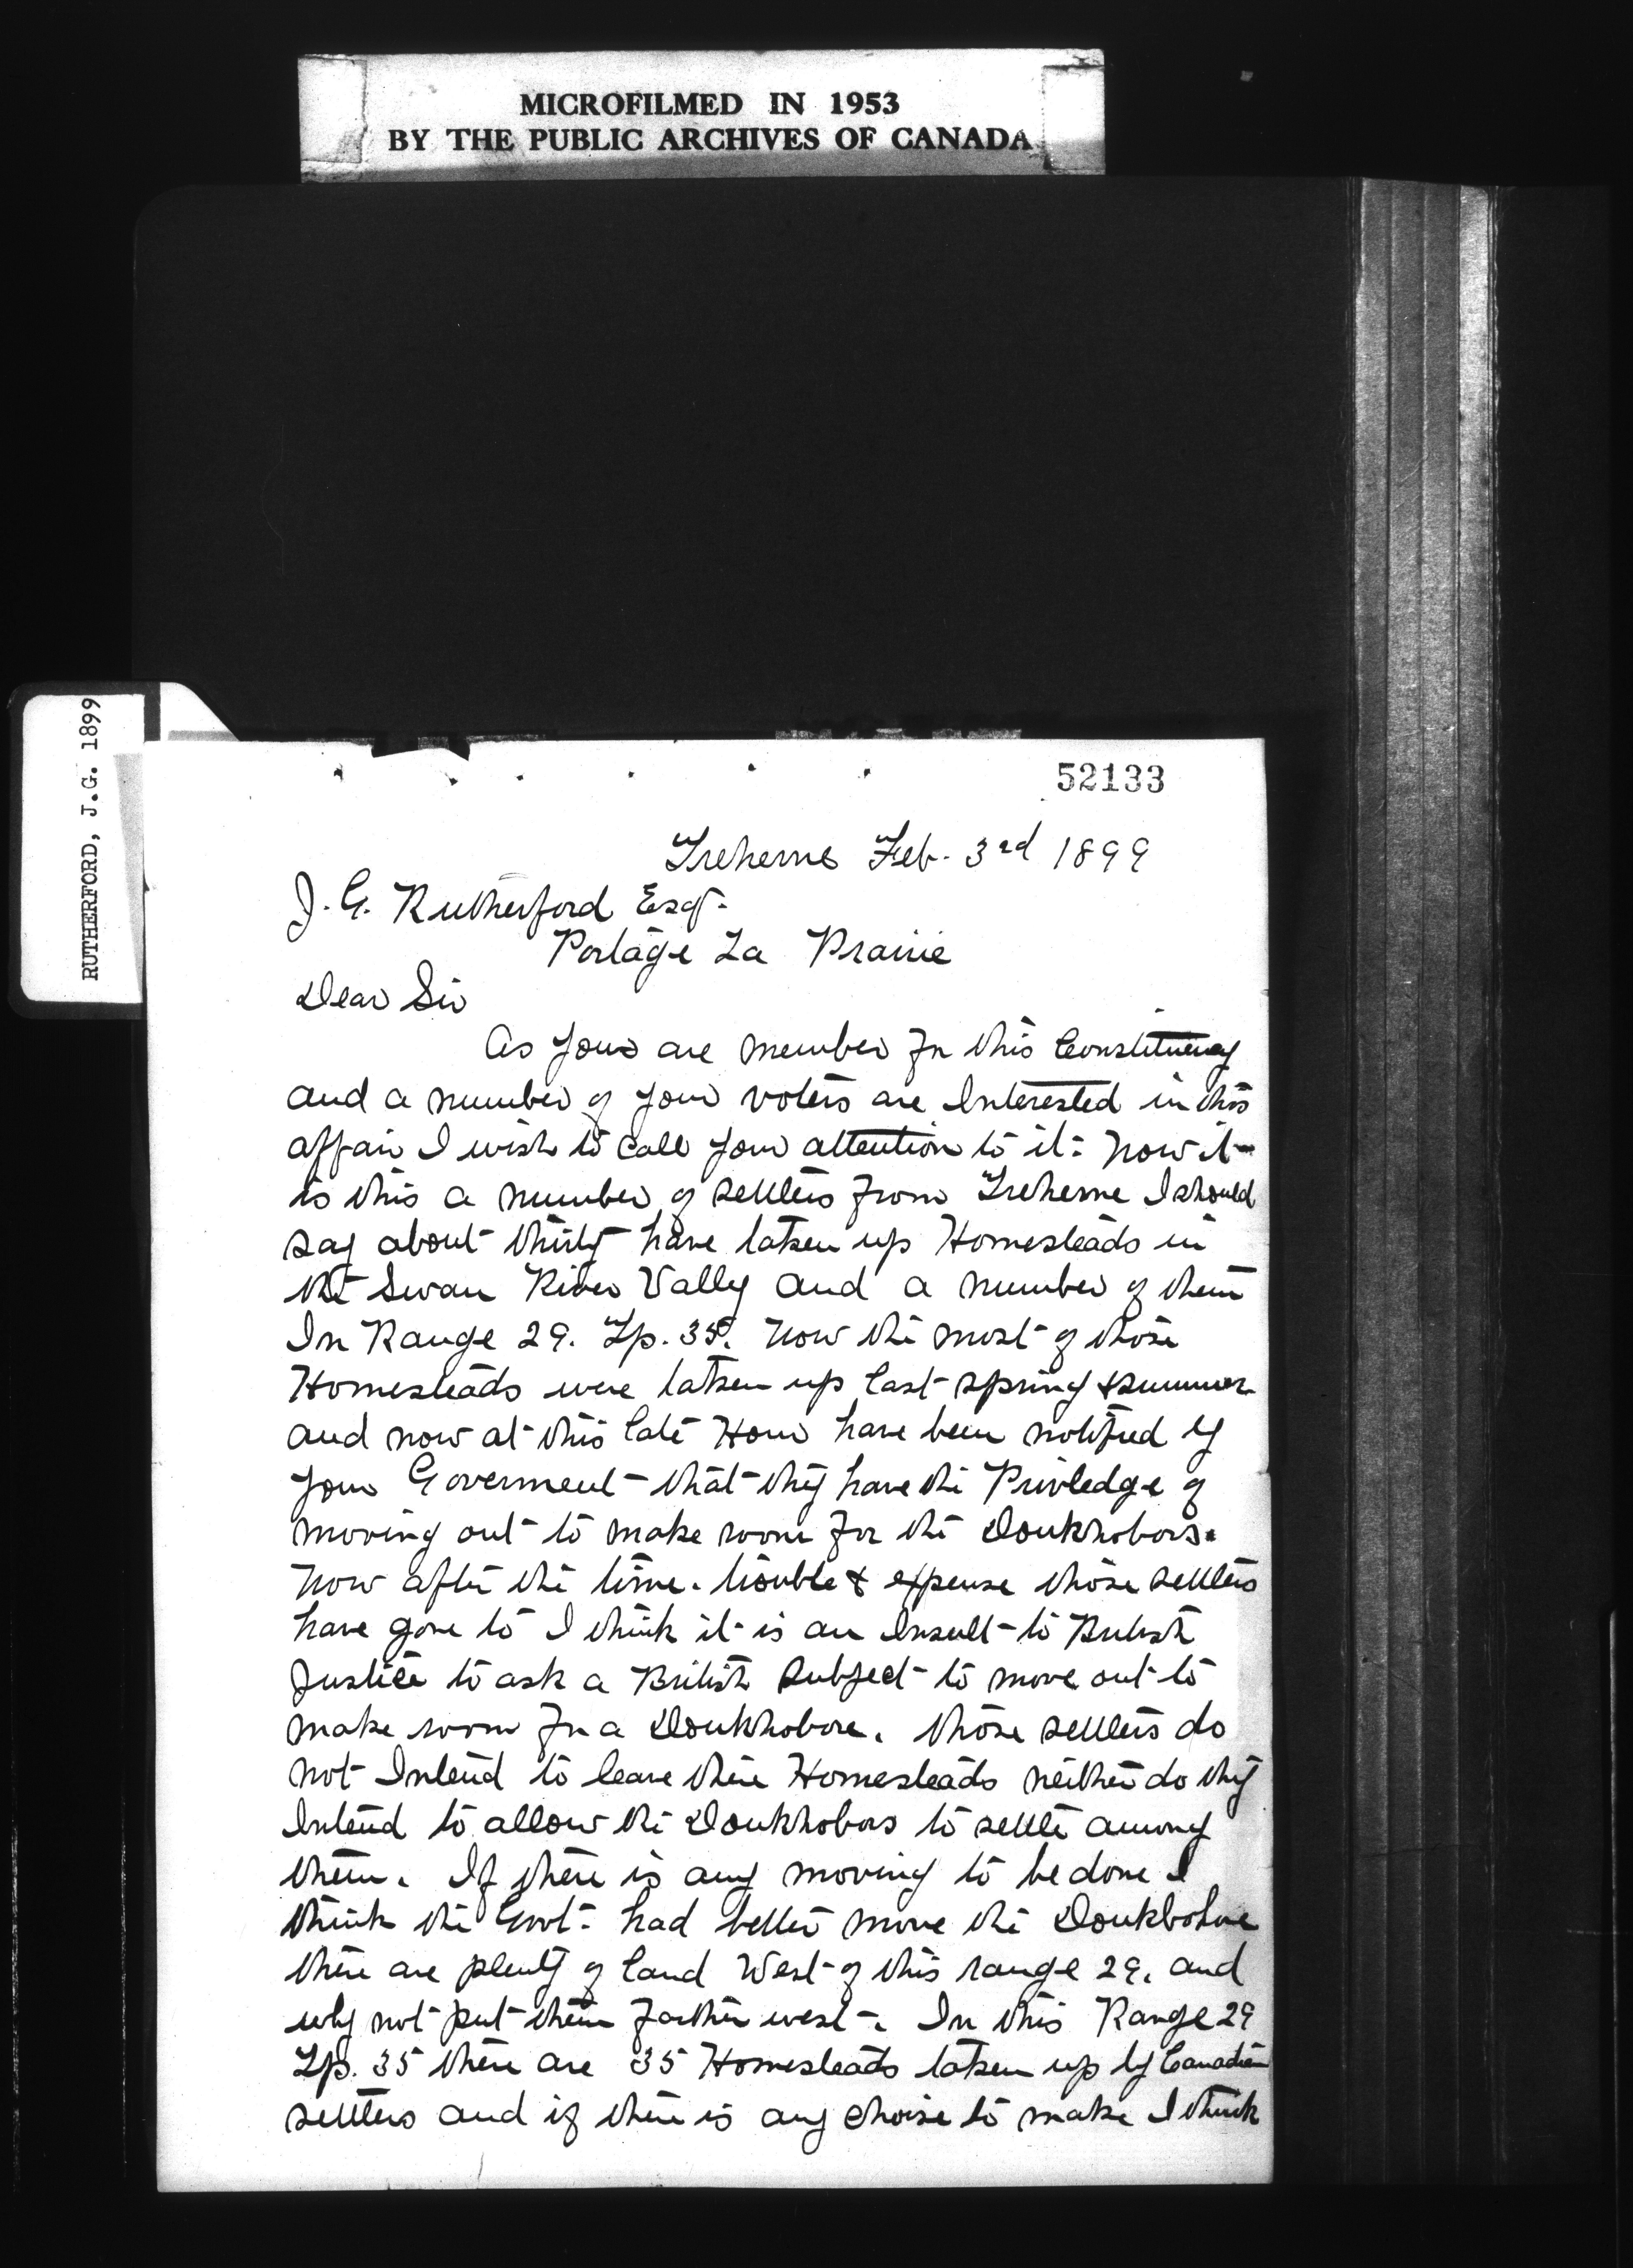 MICROFILMED IN 1953
BY THE PUBLIC ARCHIVES OF CANADA
RUTHERFORD, J.G. 1899
52133
Treherne Feb. 3rd 1899
J. G. Rutherford Esq.
Portage La Prairie
Dear Sir
As your are member for this Constituency
and a number of your voters are Interested in this
affair I wish to call your attention to it: Now it
is this a number of settlers from Treherne I should
say about thirty have taken up Homesteads in
the Swan River Vally and a number of them
In Range 29. Tp. 35. Now the most of those
Homesteads were taken up last spring & summer
and now at this late Hour have been notified by
your Goverment that they have the Priviledge of
moving out to make room for the Doukhobors.
Now after the time. trouble & expense those settlers
have gone to I think it is an Insult to British
Justice to ask a British Subject to move out to
make room for a Doukhobore. those settlers do
not Intend to leave there Homesteads neither do they
Intend to allow the Doukhobors to settle among
them. If there is any moving to be done I
think the Govt. had better move the Doukhobore
there are plenty of land West of this range 29. and
why not put them farther west. In this Range 29
Tp. 35 there are 35 Homesteads taken up by Canadian
settlers and if there is any choise to make I think